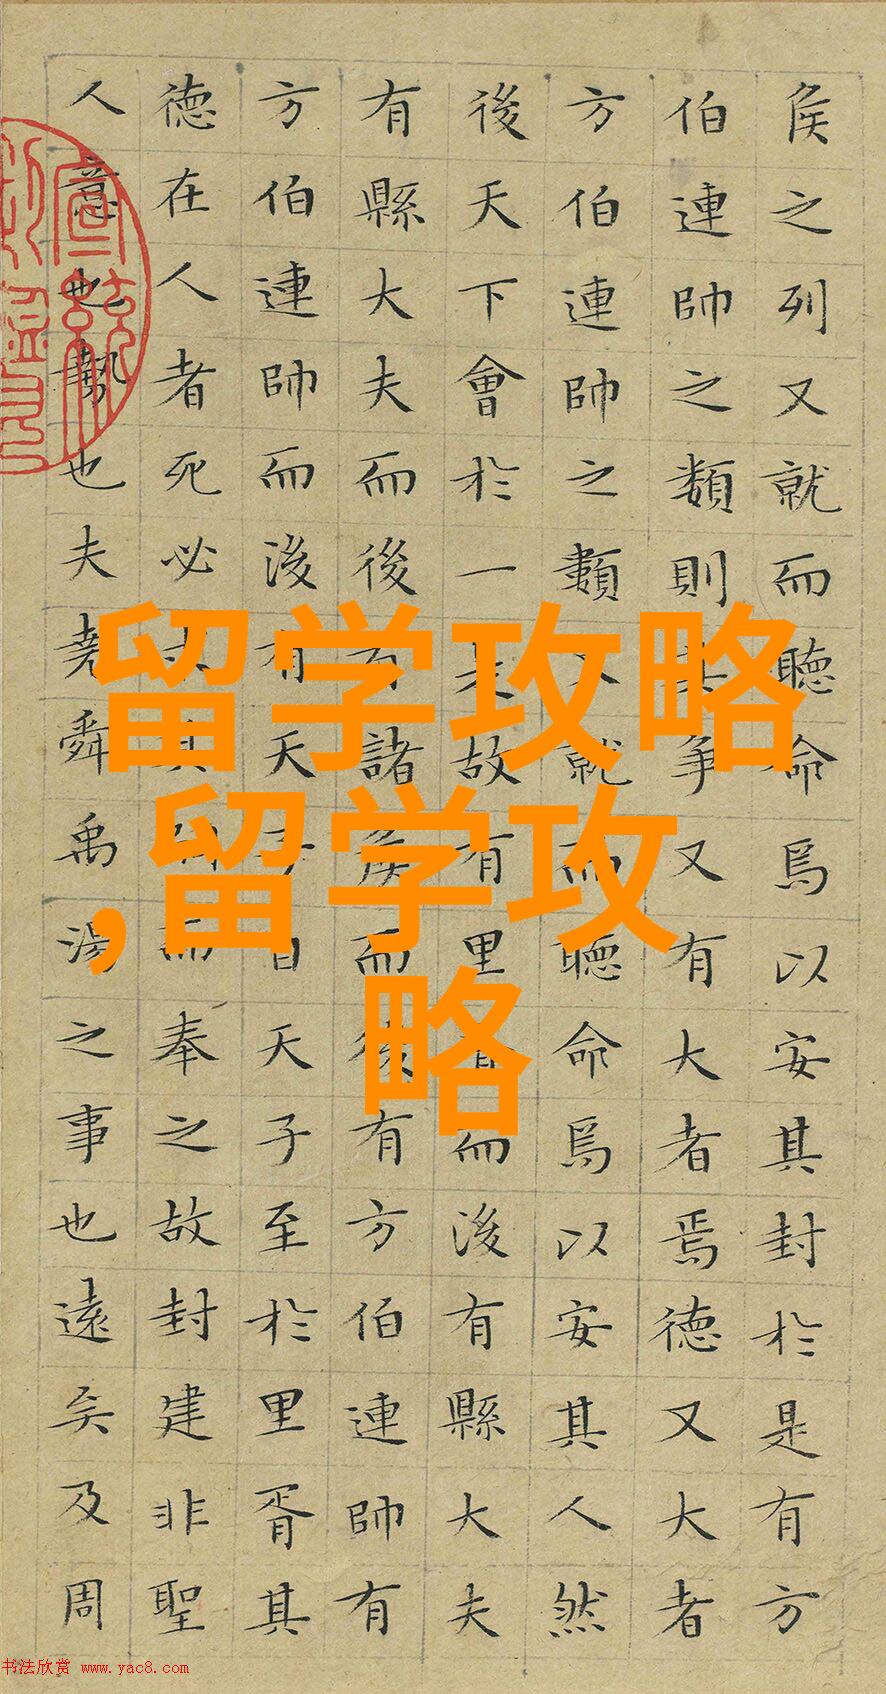 侯之列又就而聽命焉以安其封於是有方
伯連帥之類則其爭又有大者焉德又大者
方伯連帥之類又就而聽命焉以安其人然
後天下會於一是故有里胥而後有縣大夫
有縣大夫而後有諸侯而後有方伯連帥有
方伯連帥而後有天子自天子至於里胥其
德在人者死必求其嗣而奉之故封建非聖
人意也勢也夫堯舜禹湯之事也遠矣及周
留学攻略
,留学攻
略
书法欣赏 www.yac8.com